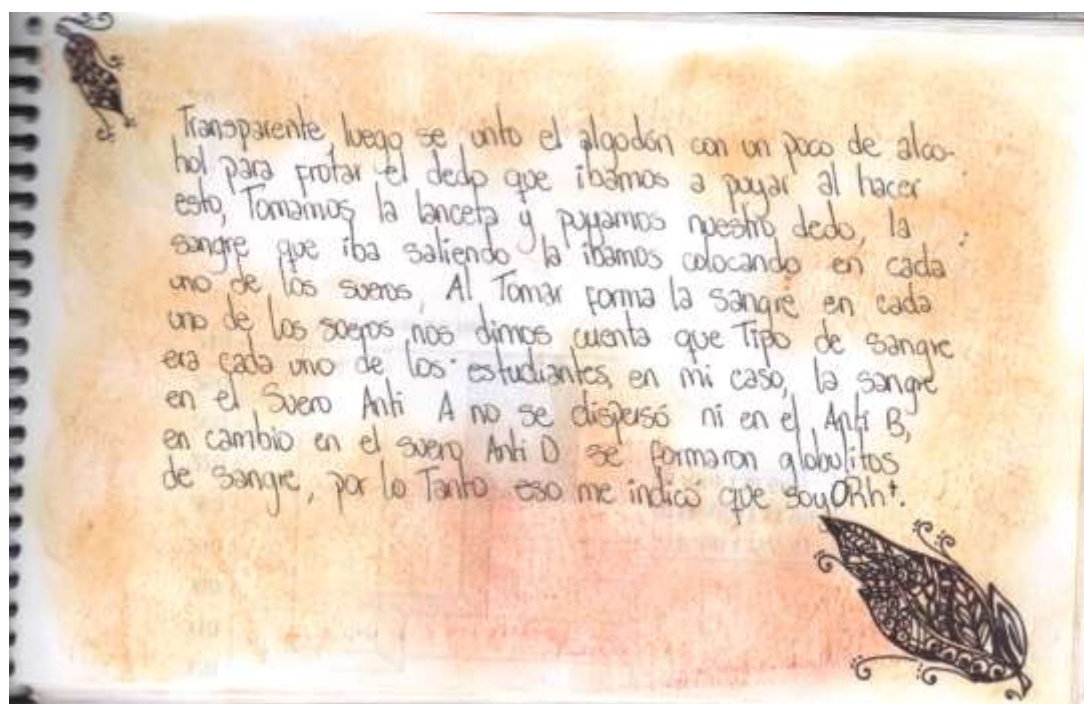 Transparente, luego se unto el algodón con un poco de alco-
hol para frotar el dedo que ibamos a puyar al hacer
esto, Tomamos la lanceta y puyamos nuestro dedo, la
sangre que iba saliendo la ibamos colocando en cada
uno de los sueros, Al Tomar forma la sangre en cada
uno de los sueros nos dimos cuenta que Tipo de sangre
era cada uno de los estudiantes, en mi caso, la sangre
en el Suero Anti A no se dispersó ni en el Anti B,
en cambio en el suero Anti D se formaron globulitos
de sangre, por lo Tanto eso me indicó que soy ORh+.